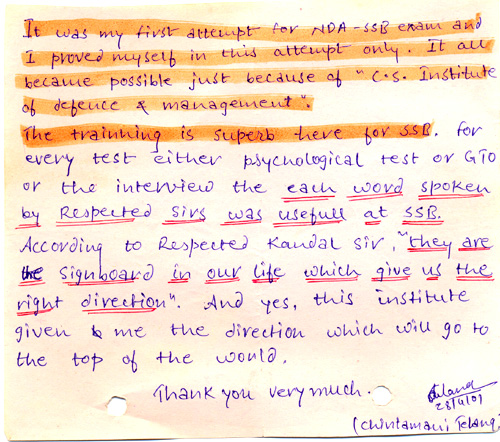 It was my first attempt for NDA-SSB exam and
I proved myself in this attempt only. It all
became possible just because of "C.S. Institute
of defence & management".
The trainning is superb here for SSB. for
every test either psychological test or GTO
or the interview the each word spoken
by Respected Sirs was usefull at SSB.
According to Respected Kandal Sir, "they are
the Signboard in our life which give us the
right direction". And yes, this institute
given me the direction which will go to
the top of the world.
Thank you very much.
28/11/01
(Chintamani Telang